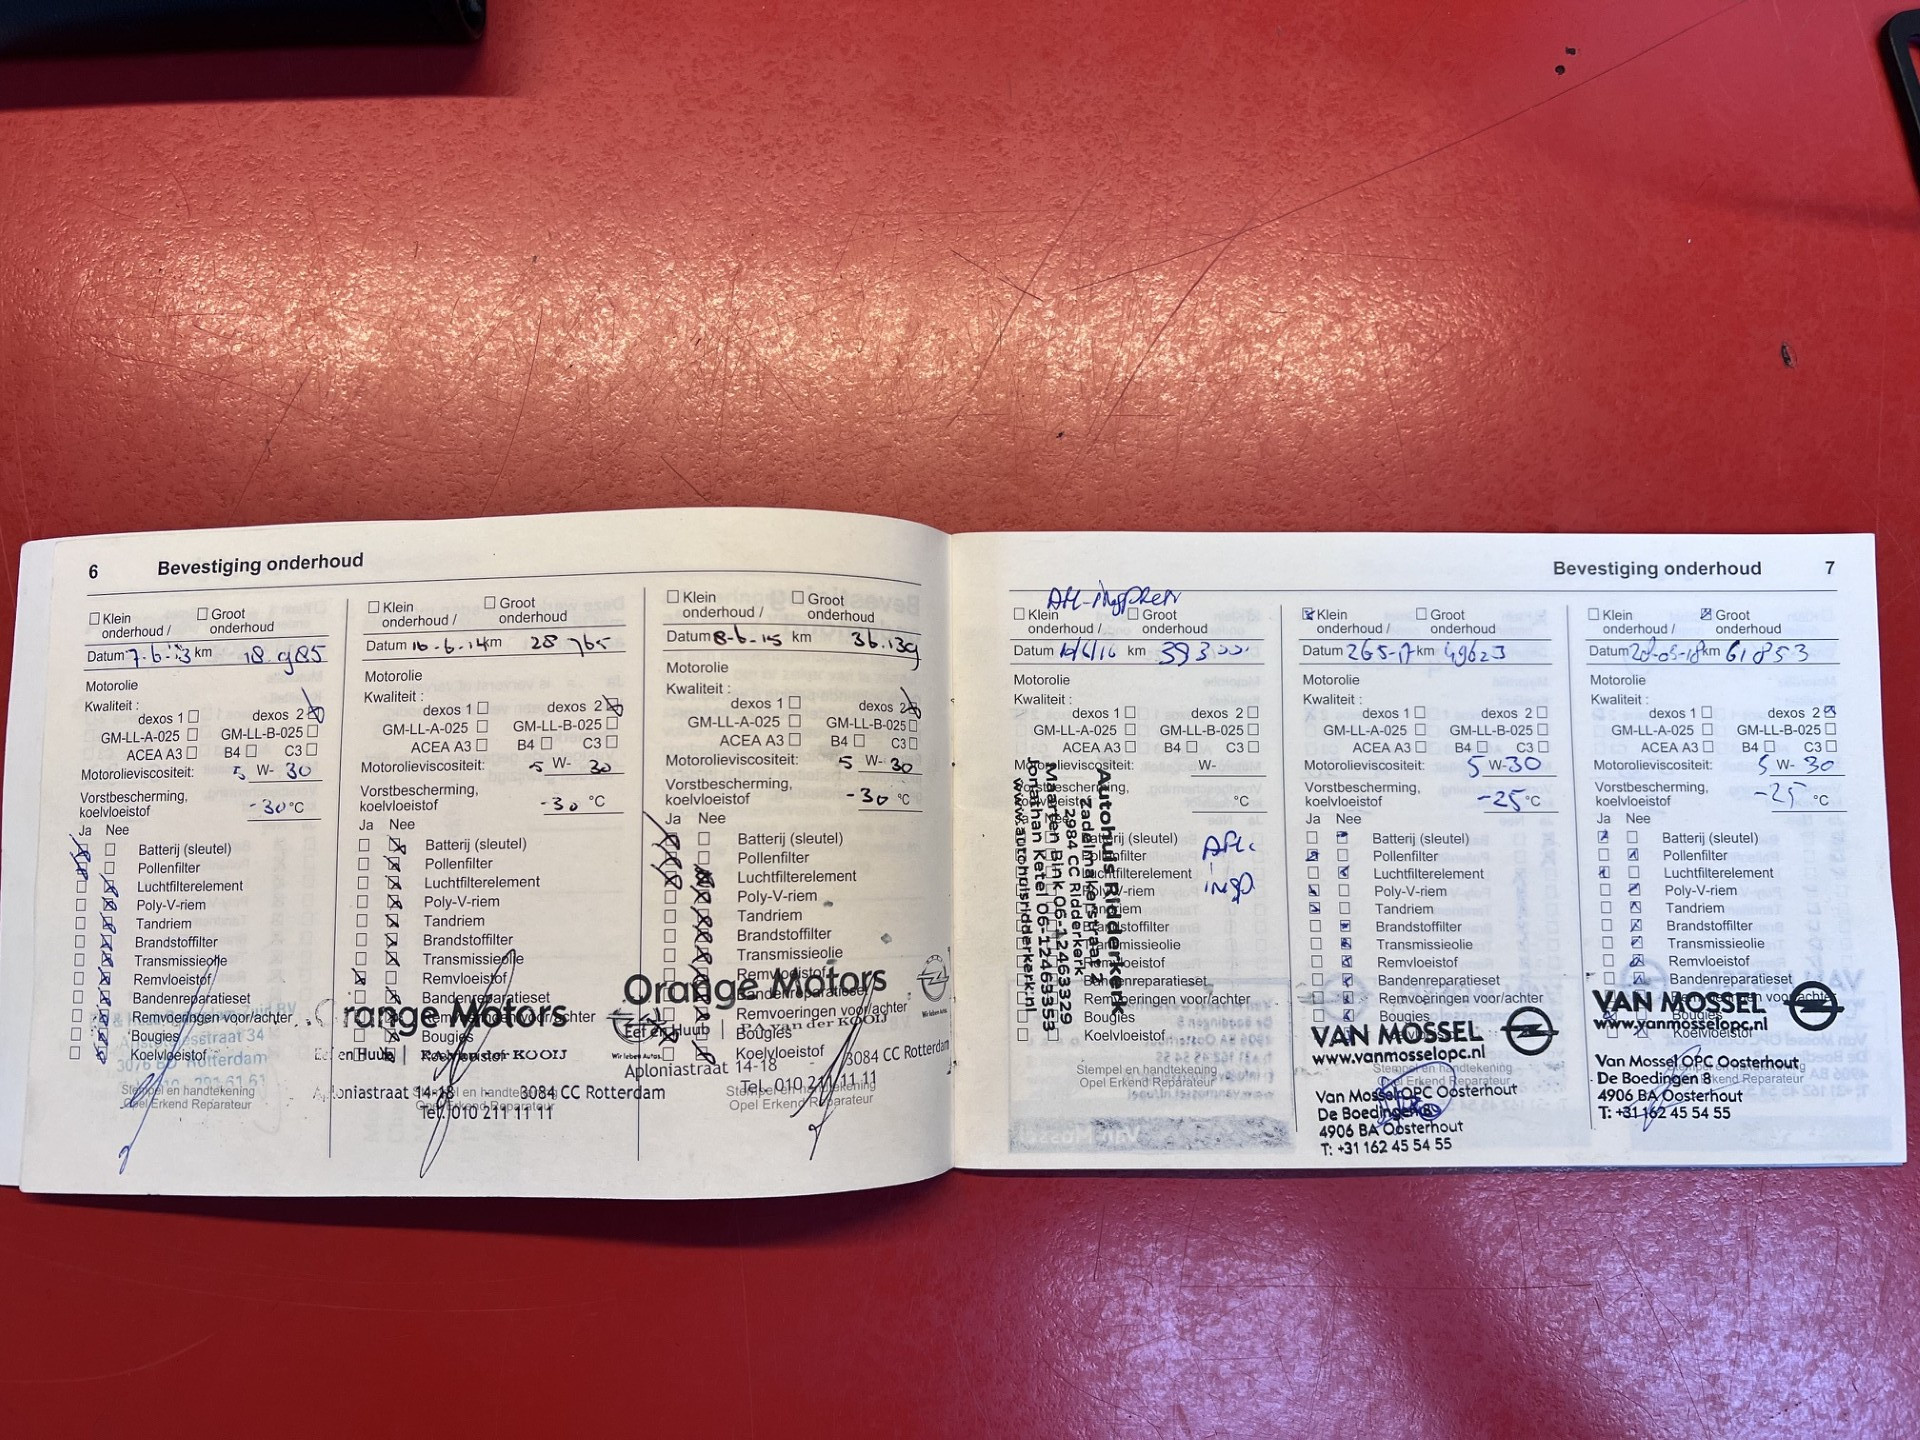 6 Bevestiging onderhoud
Klein onderhoud /
Groot onderhoud
Datum 7-6-13 km 18.985
Motorolie
Kwaliteit :
dexos 1 dexos 2
GM-LL-A-025 GM-LL-B-025
ACEA A3 B4 C3
Motorolieviscositeit: 5 W- 30
Vorstbescherming,
koelvloeistof -30 °C
Ja Nee
Batterij (sleutel)
Pollenfilter
Luchtfilterelement
Poly-V-riem
Tandriem
Brandstoffilter
Transmissieolie
Remvloeistof
Bandenreparatieset
Remvoeringen voor/achter
Bougies
Koelvloeistof
3076 BD Rotterdam
Stempel en handtekening
Opel Erkend Reparateur
Klein onderhoud /
Groot onderhoud
Datum 16-6-14 km 28 765
Motorolie
Kwaliteit :
dexos 1 dexos 2
GM-LL-A-025 GM-LL-B-025
ACEA A3 B4 C3
Motorolieviscositeit: 5 W- 30
Vorstbescherming,
koelvloeistof -30 °C
Ja Nee
Batterij (sleutel)
Pollenfilter
Luchtfilterelement
Poly-V-riem
Tandriem
Brandstoffilter
Transmissieolie
Remvloeistof
Bandenreparatieset
Remvoeringen voor/achter
Bougies
Koelvloeistof
Orange Motors
Eef en Huub | P.A. van der KOOIJ
Aploniastraat 14-18 3084 CC Rotterdam
Tel. 010 211 11 11
Stempel en handtekening
Opel Erkend Reparateur
Klein onderhoud /
Groot onderhoud
Datum 8-6-15 km 36.139
Motorolie
Kwaliteit :
dexos 1 dexos 2
GM-LL-A-025 GM-LL-B-025
ACEA A3 B4 C3
Motorolieviscositeit: 5 W- 30
Vorstbescherming,
koelvloeistof -30 °C
Ja Nee
Batterij (sleutel)
Pollenfilter
Luchtfilterelement
Poly-V-riem
Tandriem
Brandstoffilter
Transmissieolie
Remvloeistof
Bandenreparatieset
Remvoeringen voor/achter
Bougies
Koelvloeistof
Orange Motors
Eef en Huub | P.A. van der KOOIJ
Wir leben Autos.
Aploniastraat 14-18 3084 CC Rotterdam
Tel. 010 211 11 11
Stempel en handtekening
Opel Erkend Reparateur
Bevestiging onderhoud 7
Klein onderhoud /
Groot onderhoud
Datum 10/6/16 km 39300
Motorolie
Kwaliteit :
dexos 1 dexos 2
GM-LL-A-025 GM-LL-B-025
ACEA A3 B4 C3
Motorolieviscositeit: W-
Vorstbescherming,
koelvloeistof °C
Batterij (sleutel)
Pollenfilter
Luchtfilterelement
Poly-V-riem
Tandriem
Brandstoffilter
Transmissieolie
Remvloeistof
Bandenreparatieset
Remvoeringen voor/achter
Bougies
Koelvloeistof
Autohuis Ridderkerk
Zadelmakerstraat 2
2984 CC Ridderkerk
Maarten Bink 06-12463329
Jonathan Ketel 06-12465353
www.autohuisridderkerk.nl
Stempel en handtekening
Opel Erkend Reparateur
Klein onderhoud /
Groot onderhoud
Datum 26-5-17 km 49623
Motorolie
Kwaliteit :
dexos 1 dexos 2
GM-LL-A-025 GM-LL-B-025
ACEA A3 B4 C3
Motorolieviscositeit: 5 W-30
Vorstbescherming,
koelvloeistof -25 °C
Ja Nee
Batterij (sleutel)
Pollenfilter
Luchtfilterelement
Poly-V-riem
Tandriem
Brandstoffilter
Transmissieolie
Remvloeistof
Bandenreparatieset
Remvoeringen voor/achter
Bougies
Koelvloeistof
VAN MOSSEL
www.vanmosselopc.nl
Stempel en handtekening
Opel Erkend Reparateur
Van Mossel OPC Oosterhout
De Boedingen 8
4906 BA Oosterhout
T: +31 162 45 54 55
Klein onderhoud /
Groot onderhoud
Datum 28-03-18 km 61853
Motorolie
Kwaliteit :
dexos 1 dexos 2
GM-LL-A-025 GM-LL-B-025
ACEA A3 B4 C3
Motorolieviscositeit: 5 W- 30
Vorstbescherming,
koelvloeistof -25 °C
Ja Nee
Batterij (sleutel)
Pollenfilter
Luchtfilterelement
Poly-V-riem
Tandriem
Brandstoffilter
Transmissieolie
Remvloeistof
Bandenreparatieset
Remvoeringen voor/achter
Bougies
Koelvloeistof
VAN MOSSEL
www.vanmosselopc.nl
Van Mossel OPC Oosterhout
De Boedingen 8
4906 BA Oosterhout
T: +31 162 45 54 55